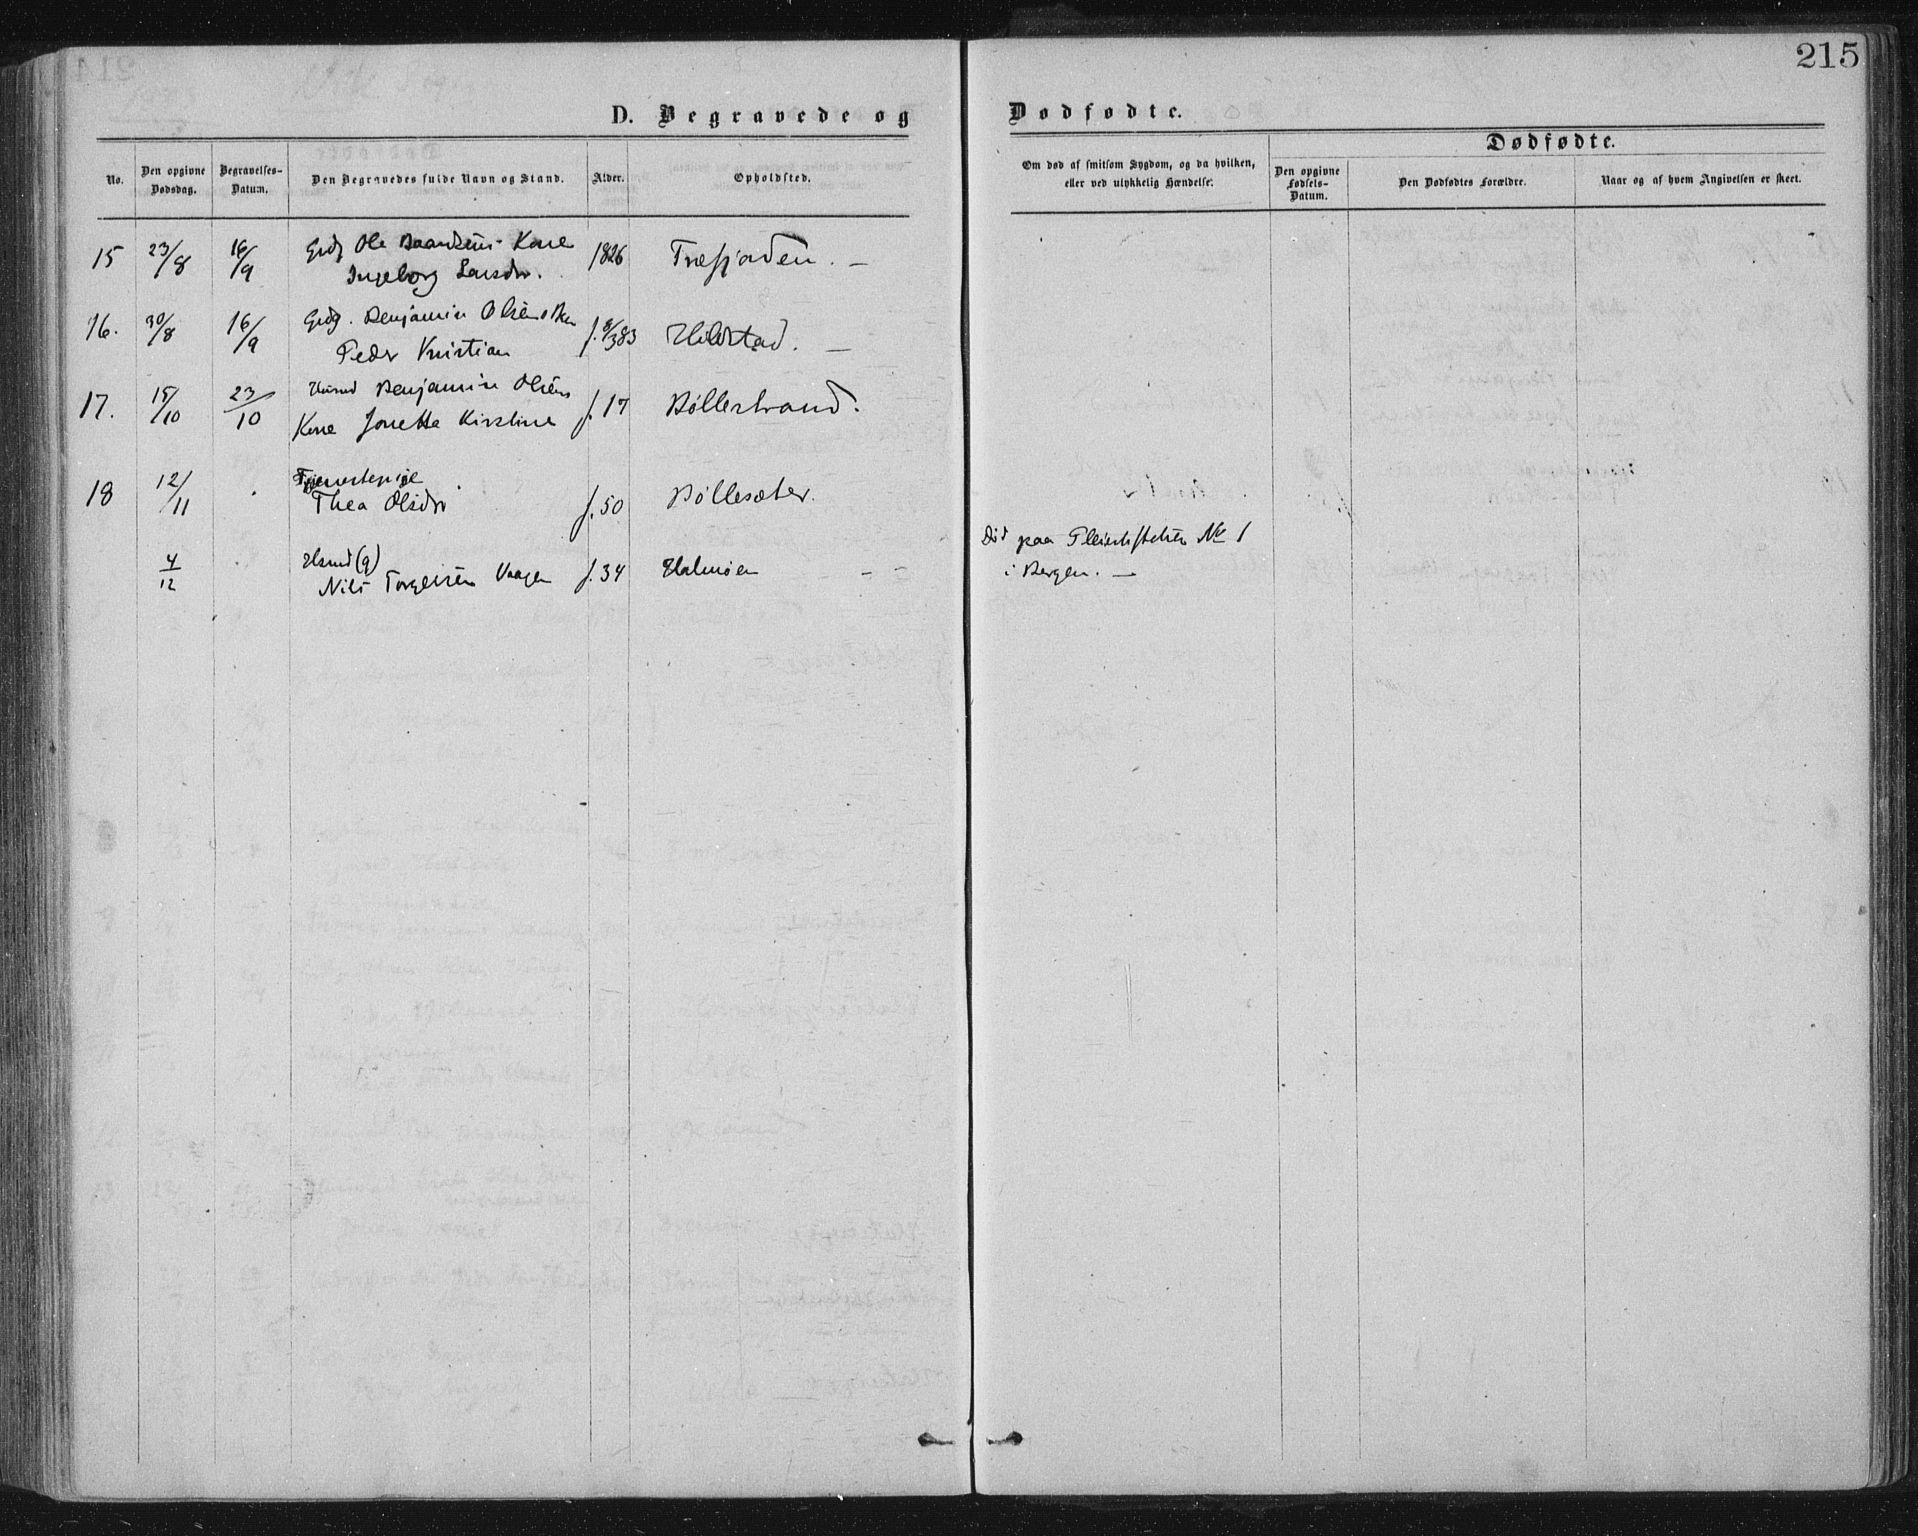 215
D. Begravede og Dødfødte.
No.
Den opgivne Dødsdag.
Begravelses-Datum.
Den Begravedes fulde Navn og Stand.
Alder.
Opholdsted.
Om død af smitsom Sygdom, og da hvilken, eller ved ulykkelig Hændelse.
Dødfødte.
Den opgivne Fødsels-Datum.
Den Dødfødtes Forældre.
Naar og af hvem Angivelsen er skeet.
15 23/8 16/9 Grdg Ole Baardsens Kone 1826 Træsjaden. —
Ingeborg Larsdr.
16. 30/8 16/9 Grdg. Benjamin Olsens Bn f. 83 Hildstad. —
Peder Kristian
17. 15/10 23/10 Husmd Benjamin Olsens f. 17 Bøllestrand.
Kone Jonetta Kirstine
18 12/11 Tjenestepige f. 50 Bøllesæter.
Thea Olsdr
4/12 Husmd (g) f. 34 Halmøen — — Død paa Pleiestiftelsen No 1
Nils Torgersen Vaagen i Bergen. —